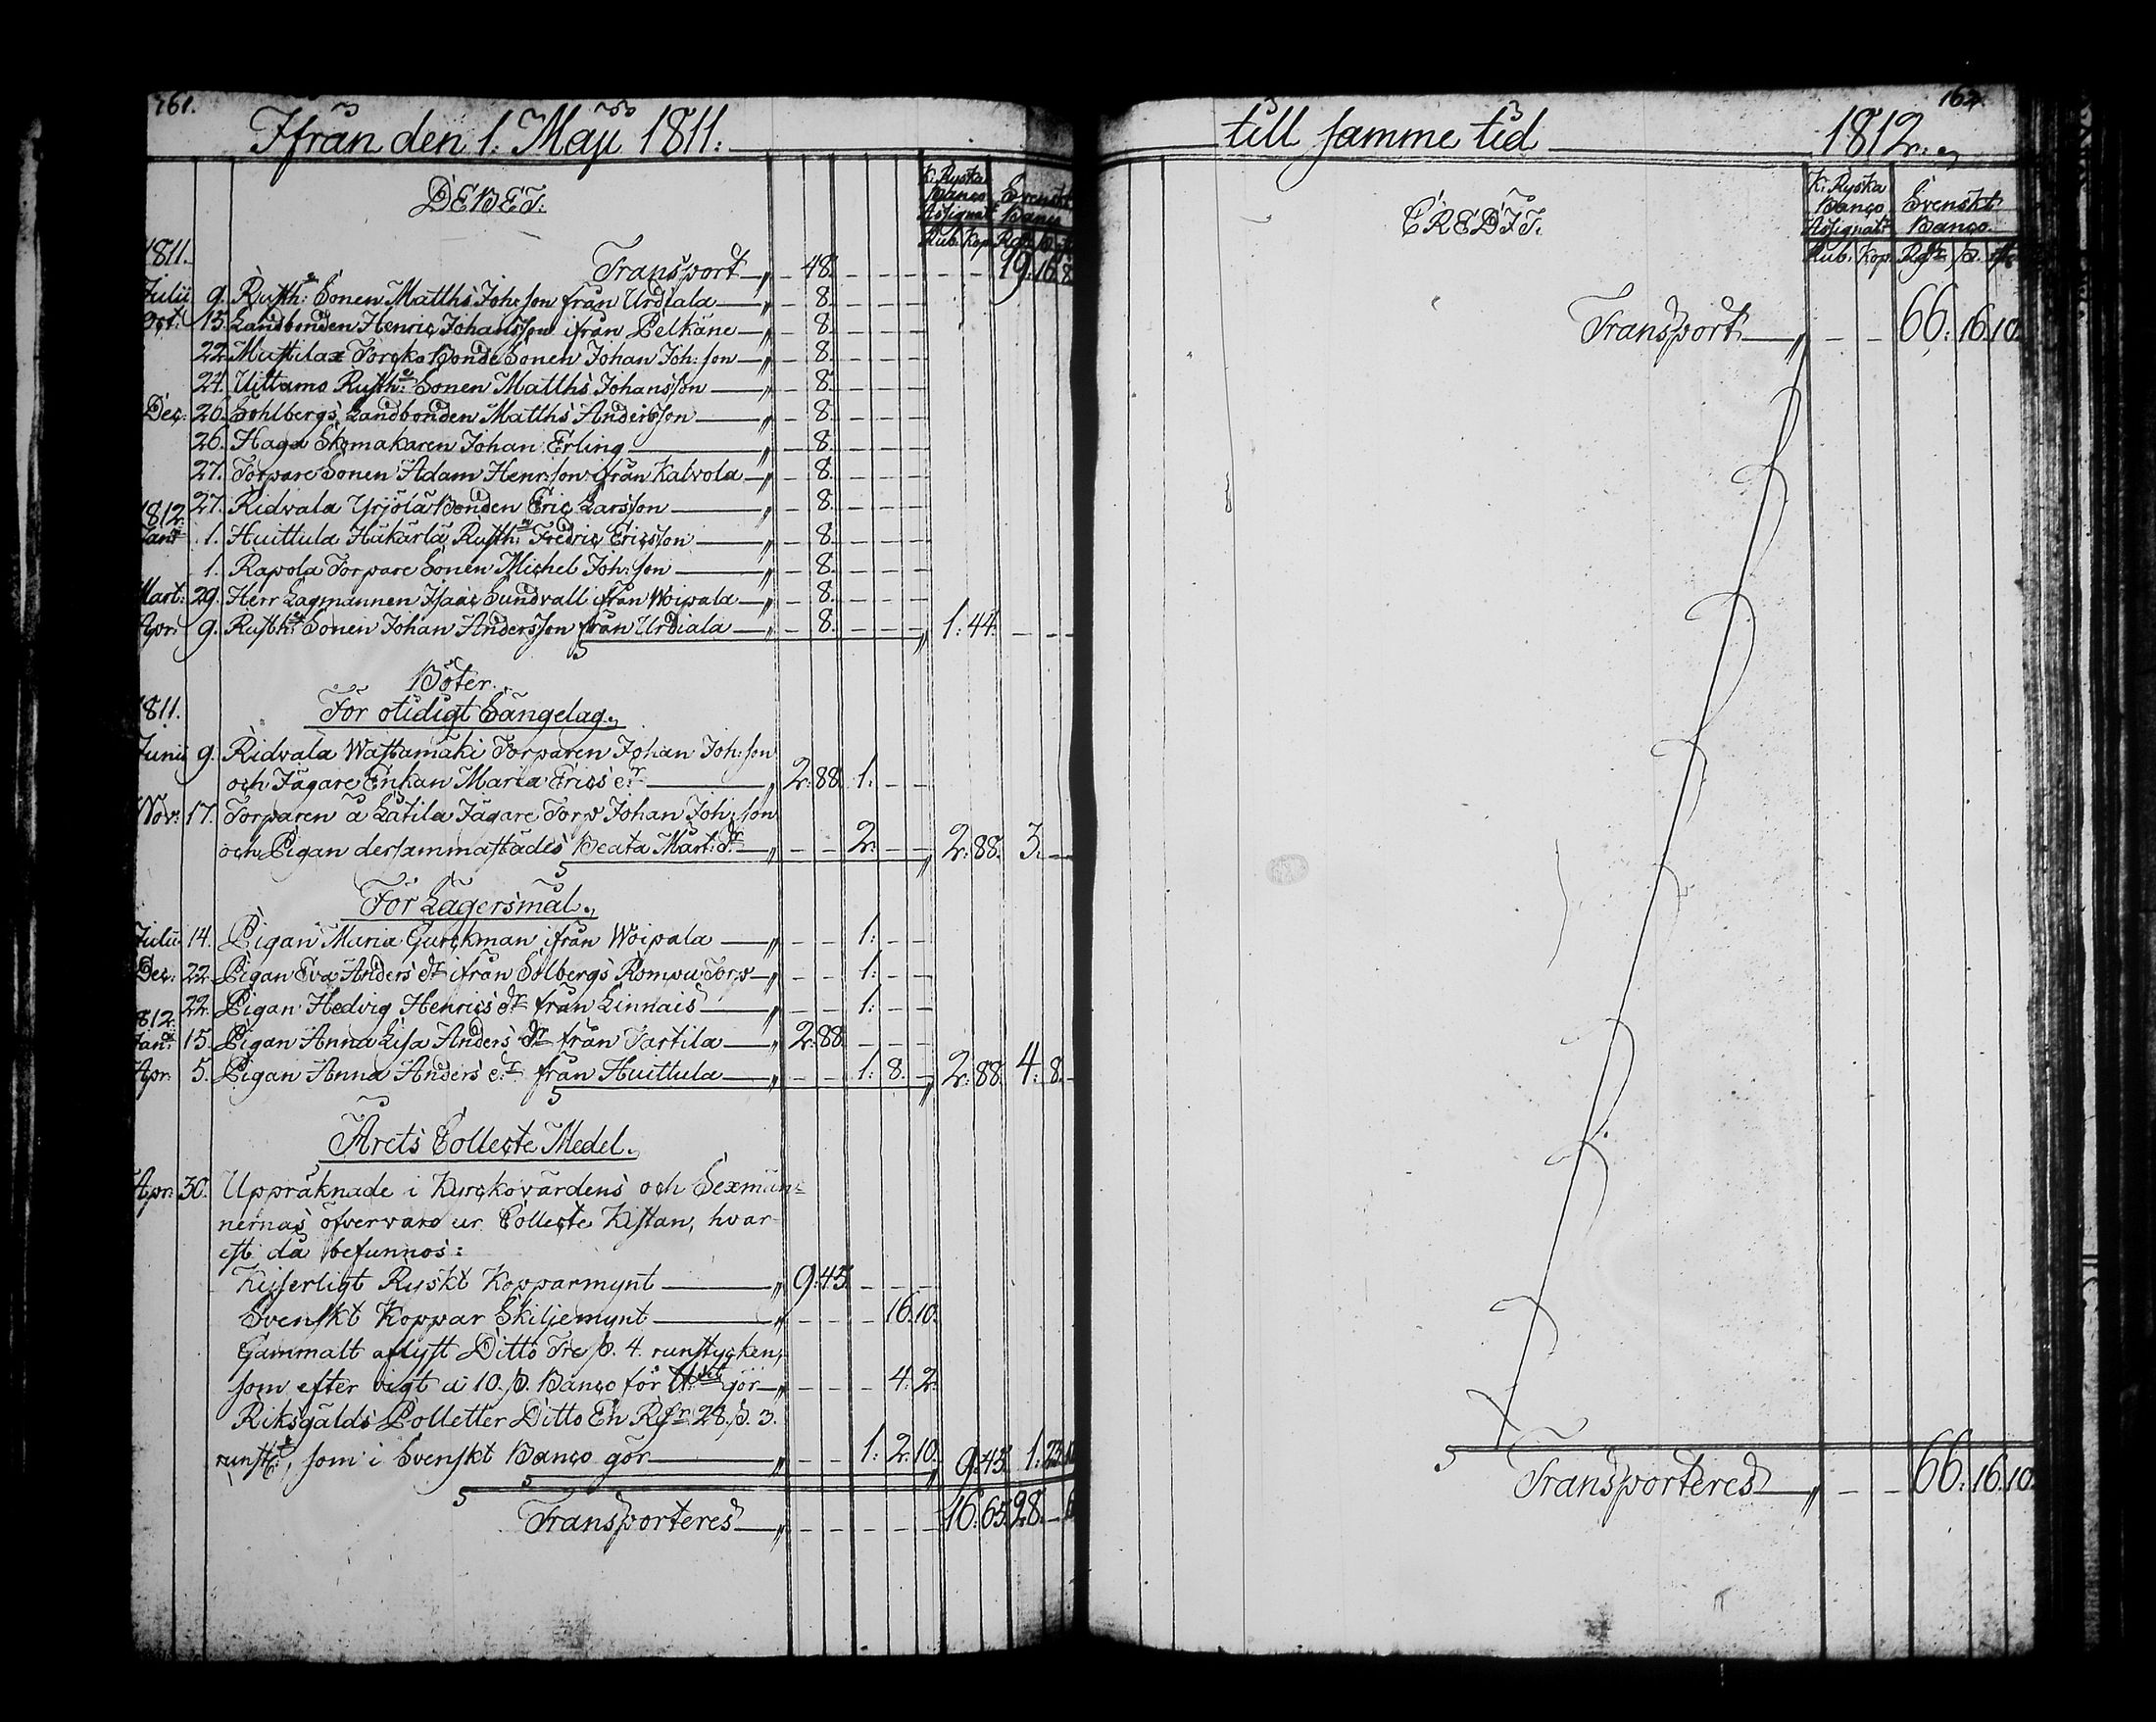 161.
Ifrån den 1. Maji 1811.
DEBET.
K. Ryska Banco Assignat. Svenskt Banco
Rub. Kop. Rdr. ß.
1811. Transport — 48. — — — — — 19. 16. 8
Julii 9. Rusth: Sonen Matths Joh:son från Urdiala — 8. — — —
Oct: 15. Landbonden Henric Johansson ifrån Pelkäne — 8. — — —
22. Mattilax Torcko Bonde Sonen Johan Joh:son — 8. — — —
24. Uittamo Rusth: Sonen Matths Johansson — 8. — — —
Dec: 26. Sohlbergs Landbonden Matths Andersson — 8. — — —
26. Haga Skomakaren Johan Erling — 8. — — —
27. Torpare Sonen Adam Henr:son ifrån Kalvola — 8. — — —
27. Ridvala Yrjölä Bonden Eric Larsson — 8. — — —
1812.
Janr: 1. Huittula Häkärlä Rusth: Fredric Ericsson — 8. — — —
1. Rapola Torpare Sonen Michel Joh:son — 8. — — —
Mart: 29. Herr Lagmannen Isaac Sundvall ifrån Woipala — 8. — — —
Apr: 9. Rusth: Sonen Johan Andersson från Urdiala — 8. — — — 1: 44. — —
Böter.
1811. För otidigt Sängelag.
Junii 9. Ridvala Wastamäki Torparen Johan Joh:son
och Jägare Enkan Maria Erics dr — 2: 88. 1: — —
Nov: 17. Torparen å Lätila Jägare Torp Johan Joh:son
och Pigan dersammastädes Beata Mårt: dr — — — 2. — — 2: 88. 3. —
För Lägersmål.
Julii 14. Pigan Maria Gurckman ifrån Woipala — — — 1: — —
Dec: 22. Pigan Eva Anders dr ifrån Solbergs Rompu Torp — — 1: — —
22. Pigan Hedvig Henrics dr från Linnais — — — 1: — —
1812.
Janr: 15. Pigan Anna Lisa Anders dr från Tartila — 2: 88. — — —
Apr: 5. Pigan Anna Anders dr från Huittula — — — 1: 8. — 2: 88. 4: 8. —
Årets Collecte Medel.
Apr: 30. Uppräknade i Kyrckovärdens och Sexmän-
nernas öfvervaro ur Collecte Kistan, hvar
est då befunnos:
Kejserligt Ryskt Kopparmynt — 9: 45. — — —
Svenskt Koppar Skiljemynt — — — — 16. 10.
Gammalt aflyst Ditto Tre ß. 4. runstycken,
som efter vigt à 10. ß. Banco för gör — — — — 4. 2.
Riksgälds Polletter Ditto En Rdr 28. ß. 3.
runst:, som i Svenskt Banco gör — — — 1: 2. 10. 9: 45. 1: 23.
Transporteres — — — — — — 16: 65. 28. —
162.
till samme tid 1812.
CREDIT.
K. Ryska Banco Assignat. Svenskt Banco.
Rub. Kop. Rdr. ß.
Transport — — — 66: 16. 10.
Transporteres — — — 66: 16. 10.